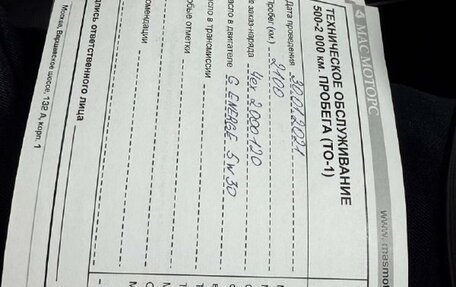 МАС МОТОРС
www.masmoto
ТЕХНИЧЕСКОЕ ОБСЛУЖИВАНИЕ
500-2 000 КМ. ПРОБЕГА (ТО-1)
Дата проведения 30.01.2021
Пробег (км.) 2100
заказ-наряда Чех 2000120
масло в двигателе G. ENERGE 5W30
масло в трансмиссии
особые отметки
рекомендации
подпись ответственного лица
Москва, Варшавское шоссе, 132 А, корп. 1